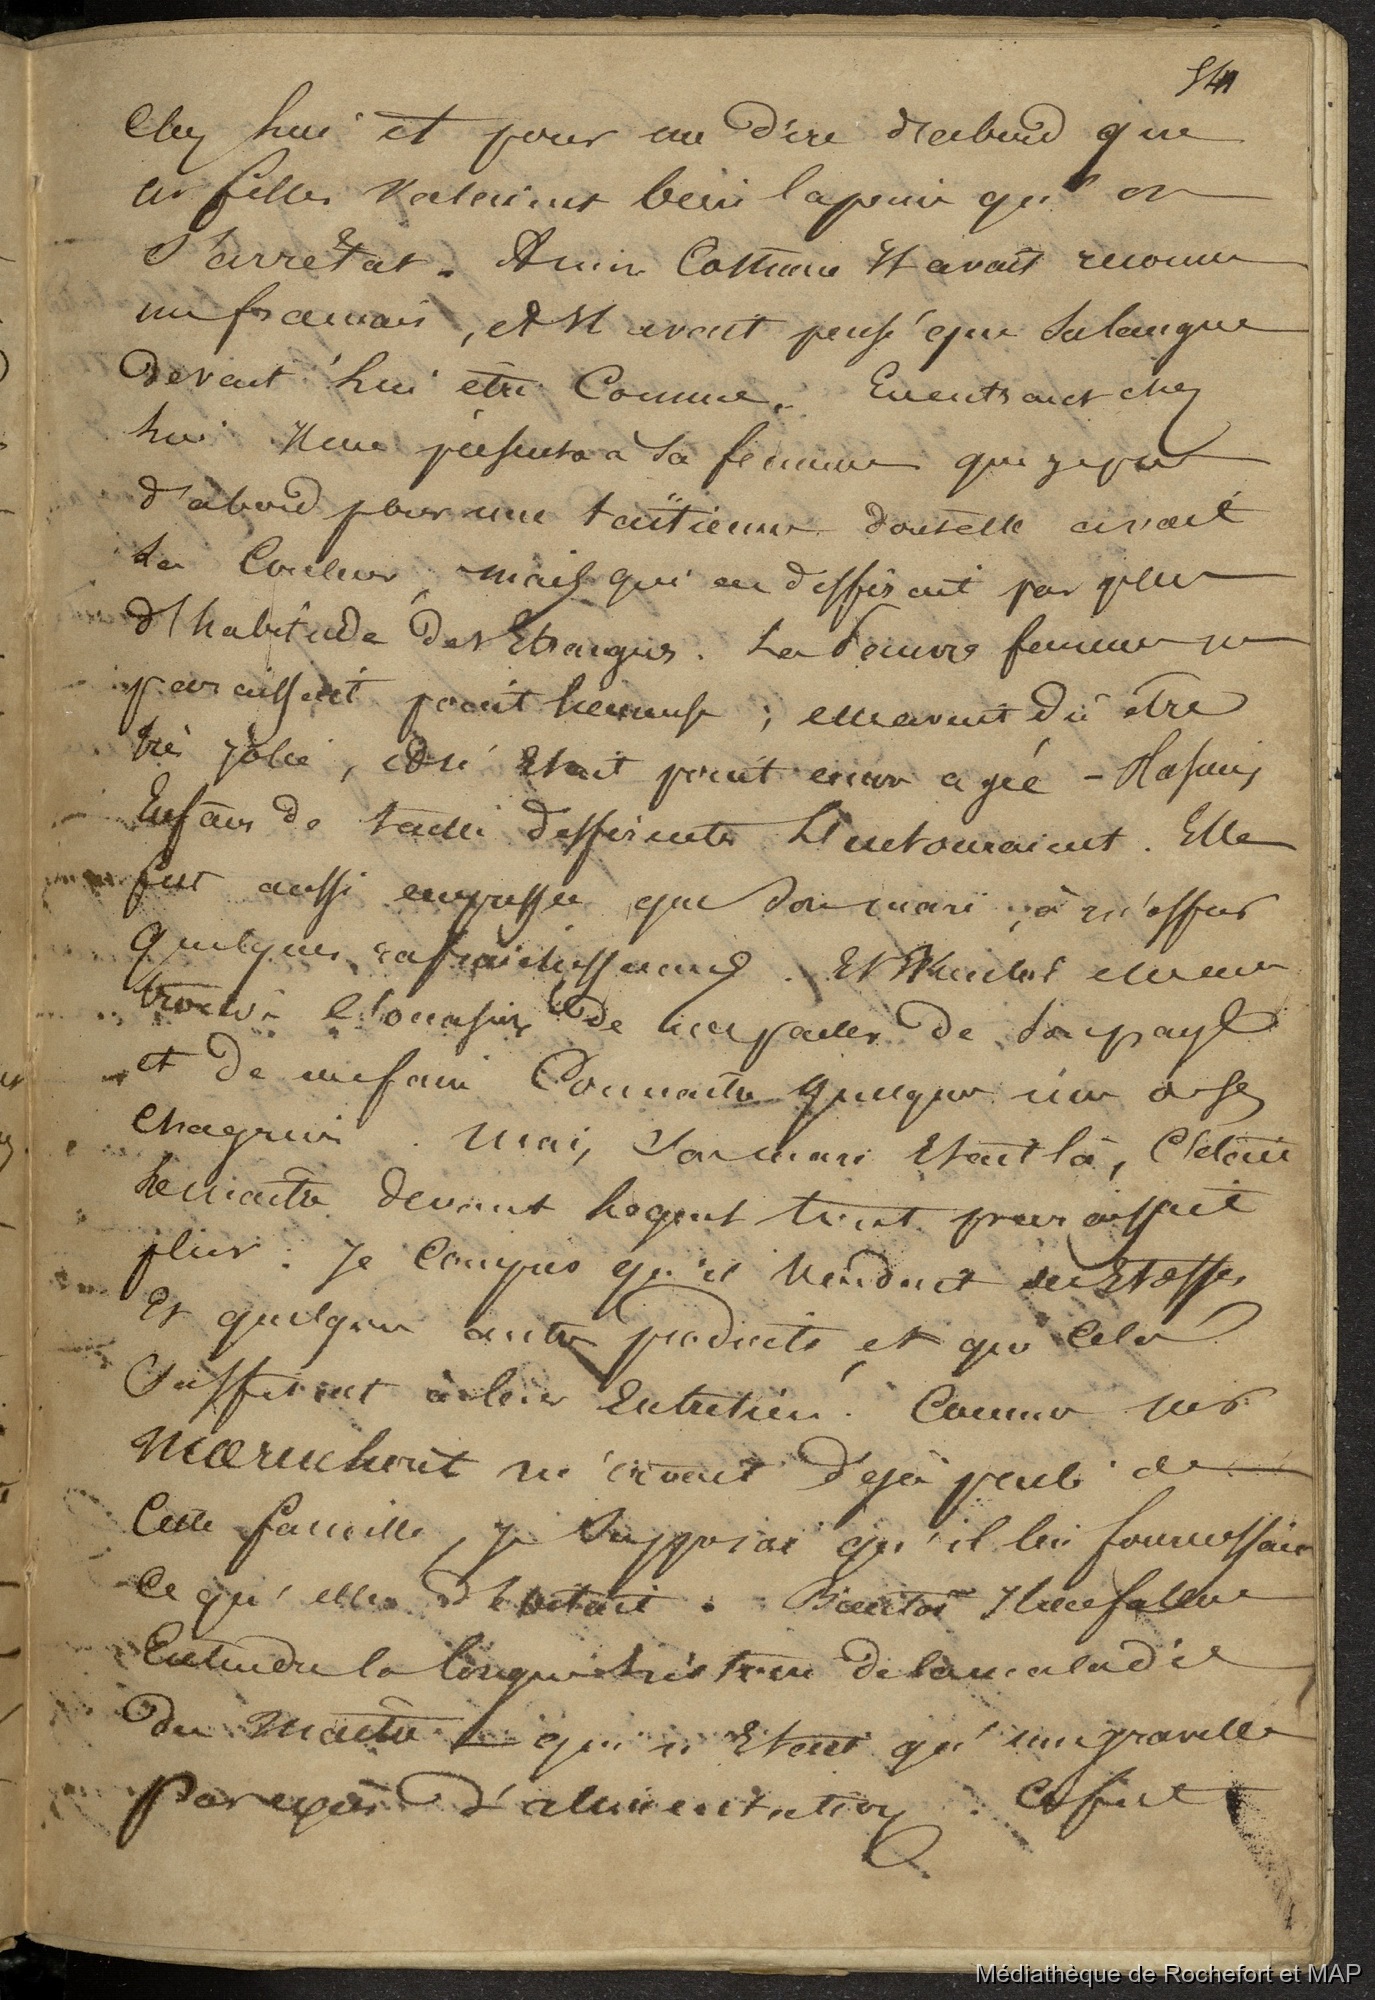 541
chez lui et pour me dire d'abord que
les filles valaient bien la peine qu'on
s'arrêtat. A mon Costume Il avait reconnu
un francais, et Il avait pensé que sa langue
devait lui être Connue. En entrant chez
lui Il me présenta à sa femme que je pris
d'abord pour une taïtienne dont elle avait
la Couleur, mais qui en differait par plus
d'habitude des Etrangers. La Pauvre femme ne
paraissait point heureuse ; elle avait dû être
très jolie, et n'était point encor agée – Plusieurs
Enfans de taille differente L'entouraient. Elle
fut aussi empressée que son mari, à m'offrir
quelques rafraichissemens. Et Bientot elle eut
trouvé l'occasion de me parler de son pays
et de me faire Connaitre quelques uns de ses
chagrins. Mais, son mari Etait là, C'était
le maitre devant lequel tout paraissait
plier. Je Compris qu'il Vendait des Etoffes
Et quelques autres produits et que Cela
Suffisait à leur Entretien. Comme mr
Mœrenhout m'avait déjà parlé de
Cette famille, je supposai qu'il lui fournissait
Ce qu'elle débitait. Bientôt Il me fallut
Entendre la longue histoire de la maladie
du Maitre – qui n'Etait qu'une gravelle
Par excès d'alimentation. Ce fut
Médiathèque de Rochefort et MAP